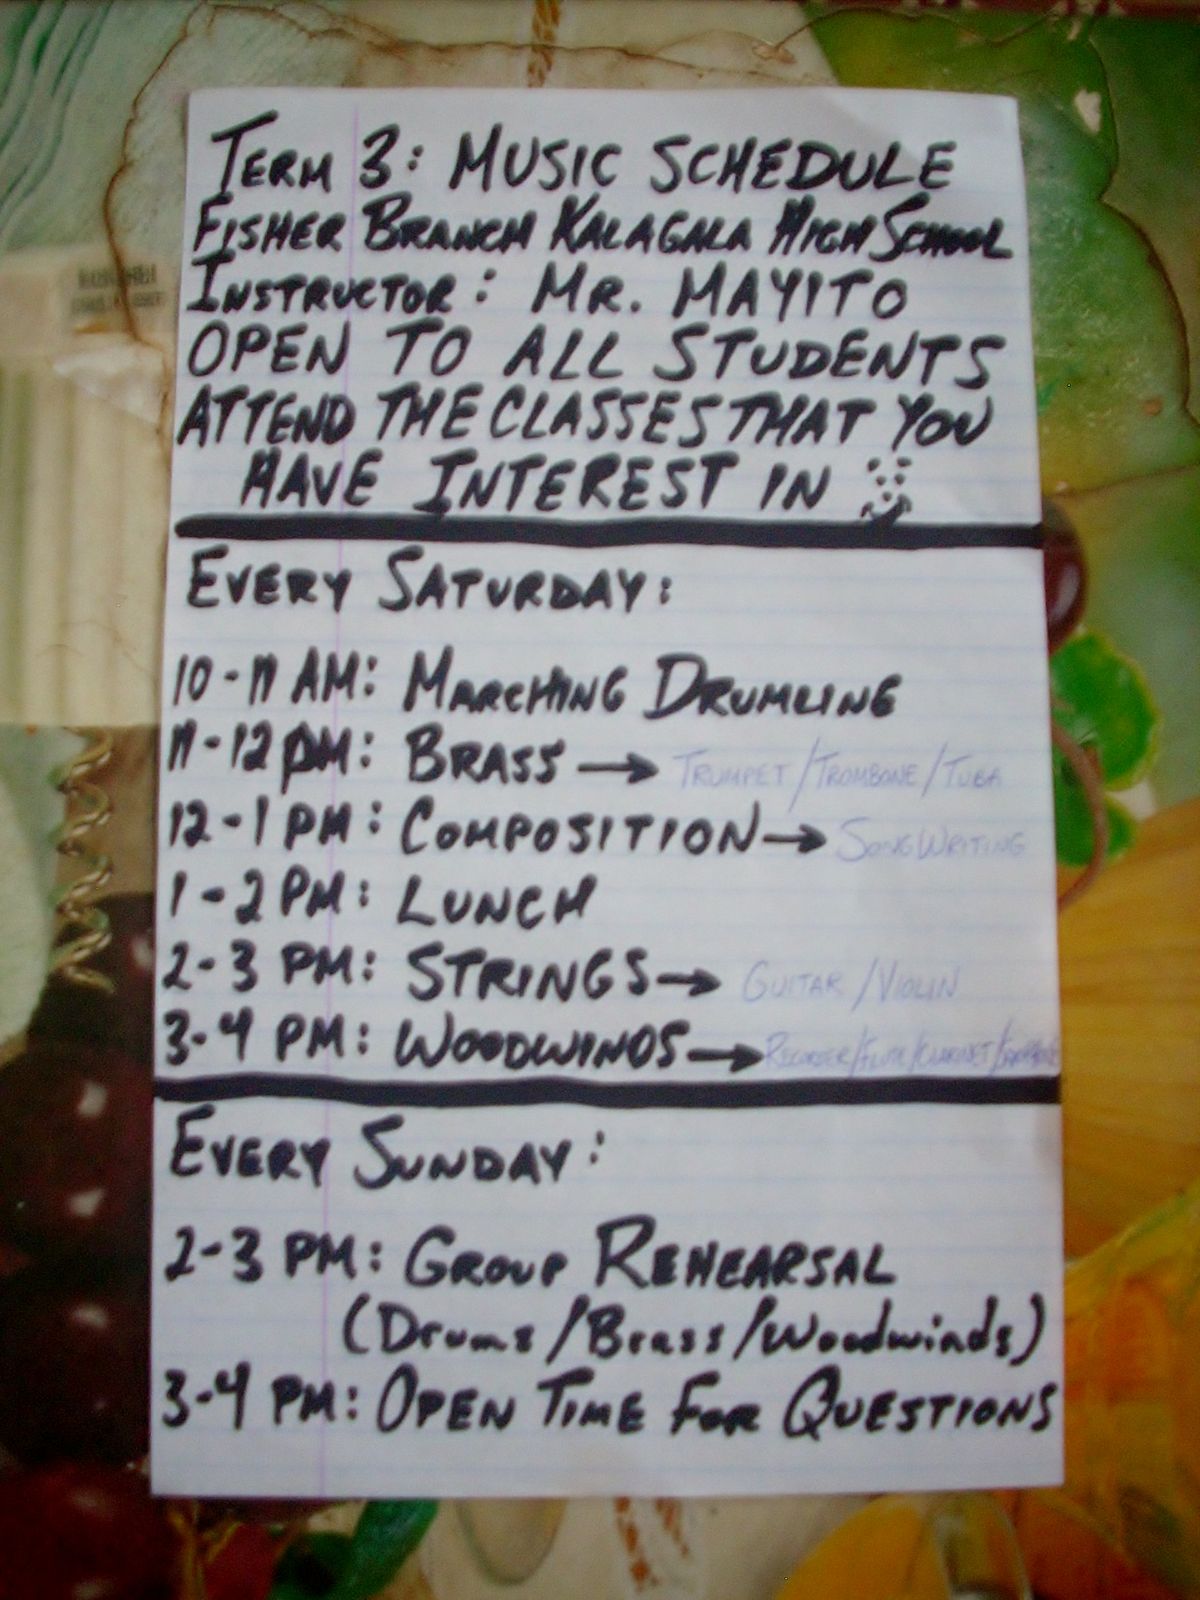 TERM 3: MUSIC SCHEDULE
FISHER BRANCH KALAGALA HIGH SCHOOL
INSTRUCTOR: MR. MAYITO
OPEN TO ALL STUDENTS
ATTEND THE CLASSES THAT YOU
HAVE INTEREST IN
EVERY SATURDAY:
10-11 AM: MARCHING DRUMLINE
11-12 PM: BRASS → TRUMPET/TROMBONE/TUBA
12-1 PM: COMPOSITION → SONGWRITING
1-2 PM: LUNCH
2-3 PM: STRINGS → GUITAR/VIOLIN
3-4 PM: WOODWINDS → RECORDER/FLUTE/CLARINET/
EVERY SUNDAY:
2-3 PM: GROUP REHEARSAL
(Drums/Brass/Woodwinds)
3-4 PM: OPEN TIME FOR QUESTIONS